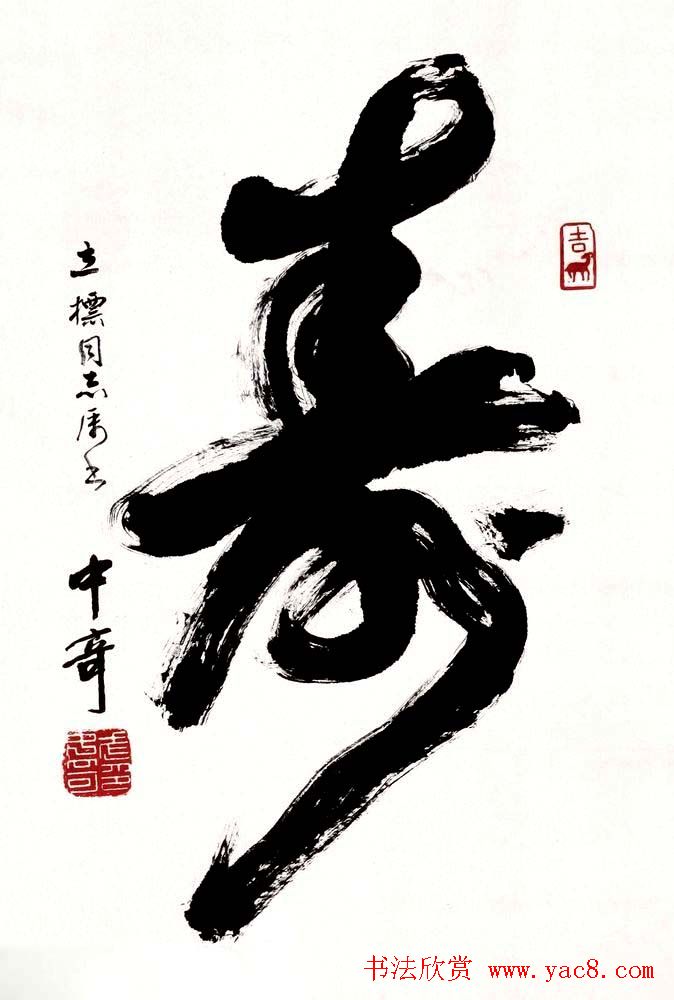 吉
寿
立標同志属书
中奇
书法欣赏 www.yac8.com